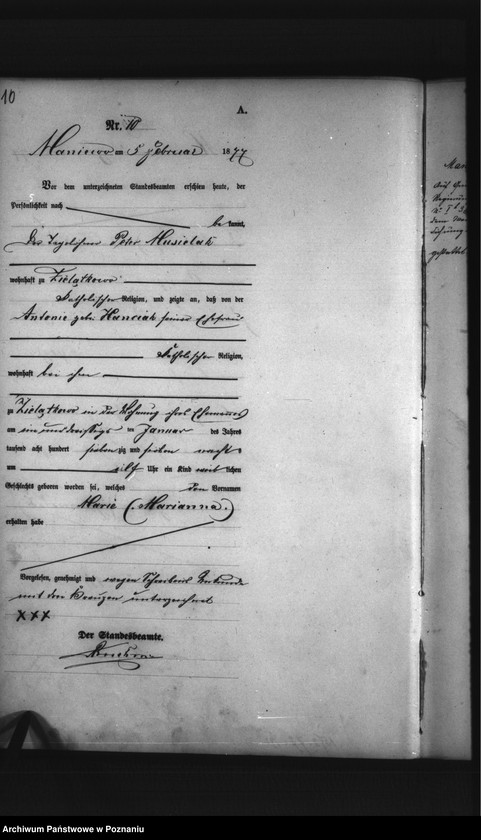 10
A.
Nr. 10
Maniewo am 5 Februar 1877
Vor dem unterzeichneten Standesbeamten erschien heute, der
Persönlichkeit nach
be kannt,
Der Tagelöhner Peter Musielak
wohnhaft zu Zielątkowo
Katholischer Religion, und zeigte an, daß von der
Antonie geb. Hanciak seiner Ehefrau
Katholischer Religion,
wohnhaft bei ihm
zu Zielątkowo in der Wohnung ihres Ehemannes
am ein und dreißigs ten Januar des Jahres
tausend acht hundert sieben zig und sieben nachts
um elf Uhr ein Kind weib lichen
Geschlechts geboren worden sei, welches den Vornamen
Marie (Marianna.)
erhalten habe
Vorgelesen, genehmigt und wegen Schreibens Unkunde
mit drei Kreuzen unterzeichnet
XXX
Der Standesbeamte.
Archiwum Państwowe w Poznaniu